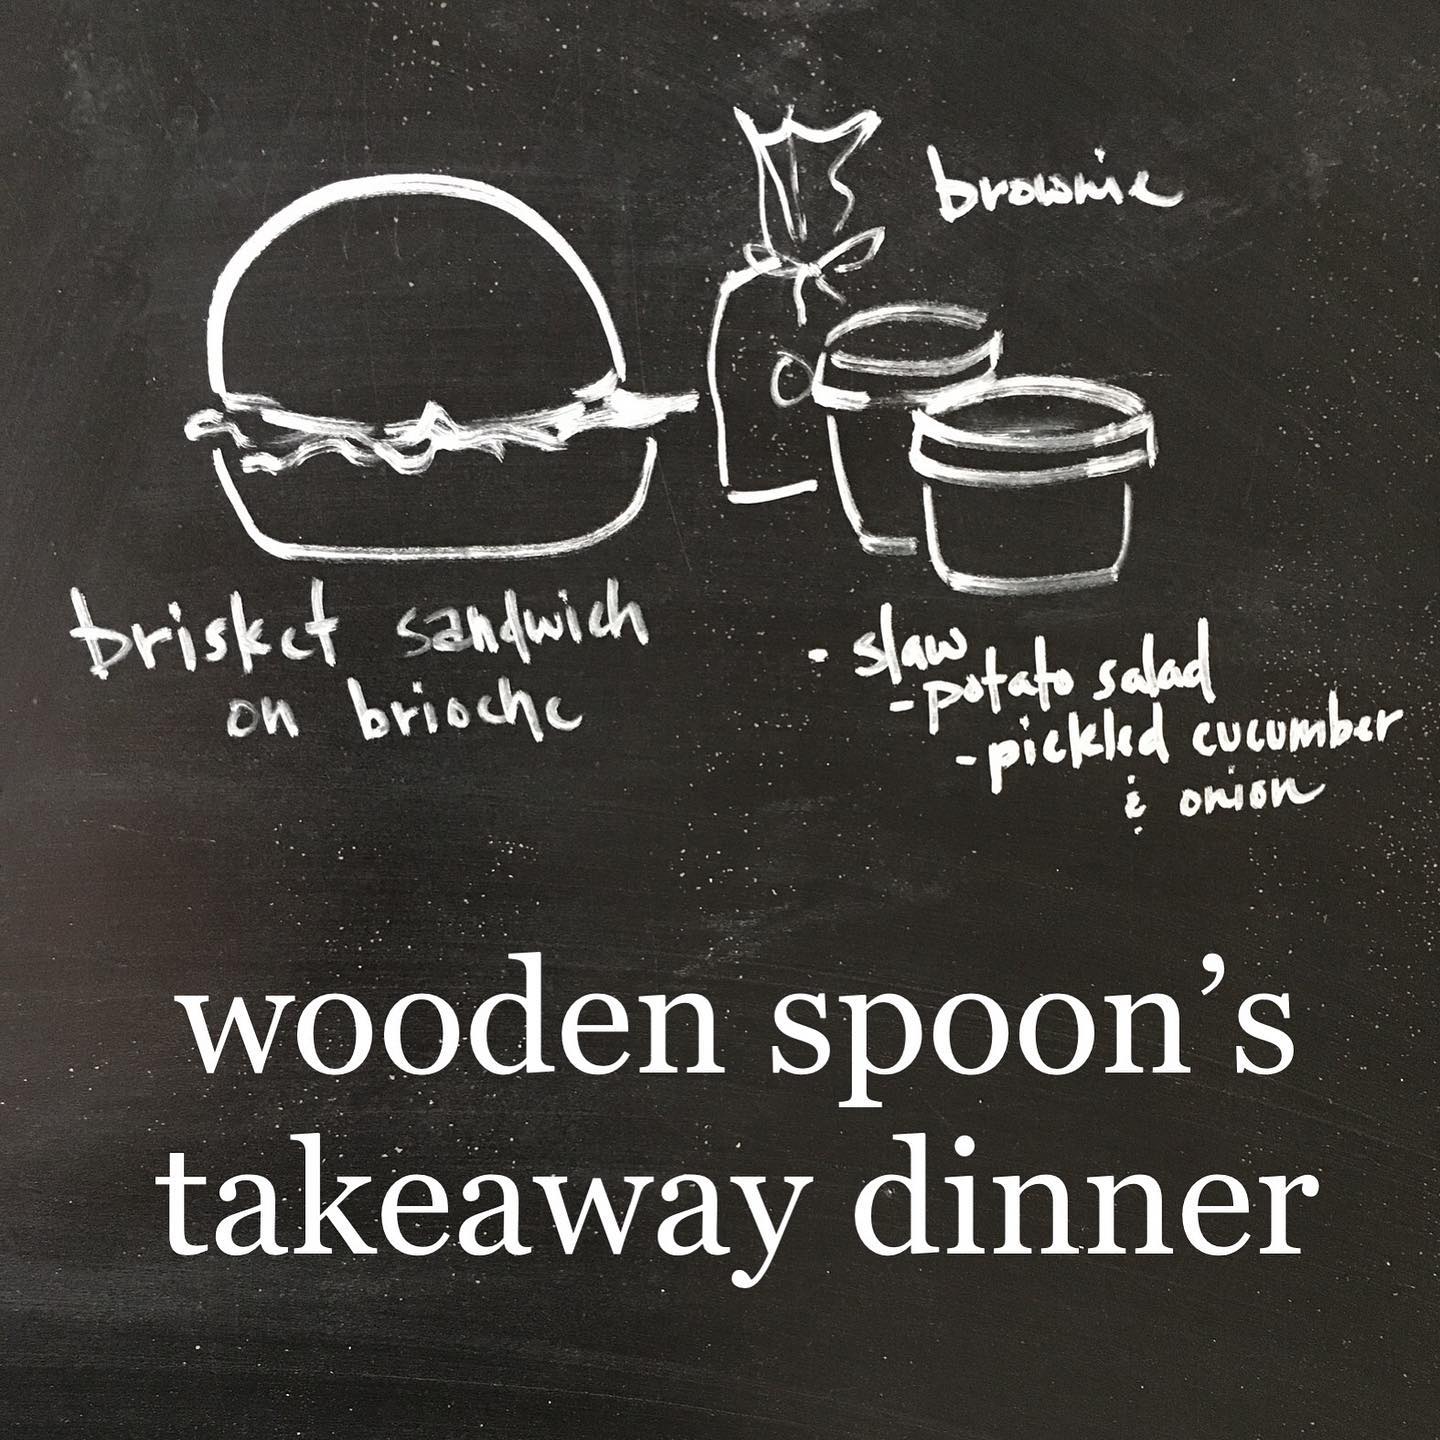 brownie
brisket sandwich
on brioche
- slaw
- potato salad
- pickled cucumber
& onion
wooden spoon’s
takeaway dinner